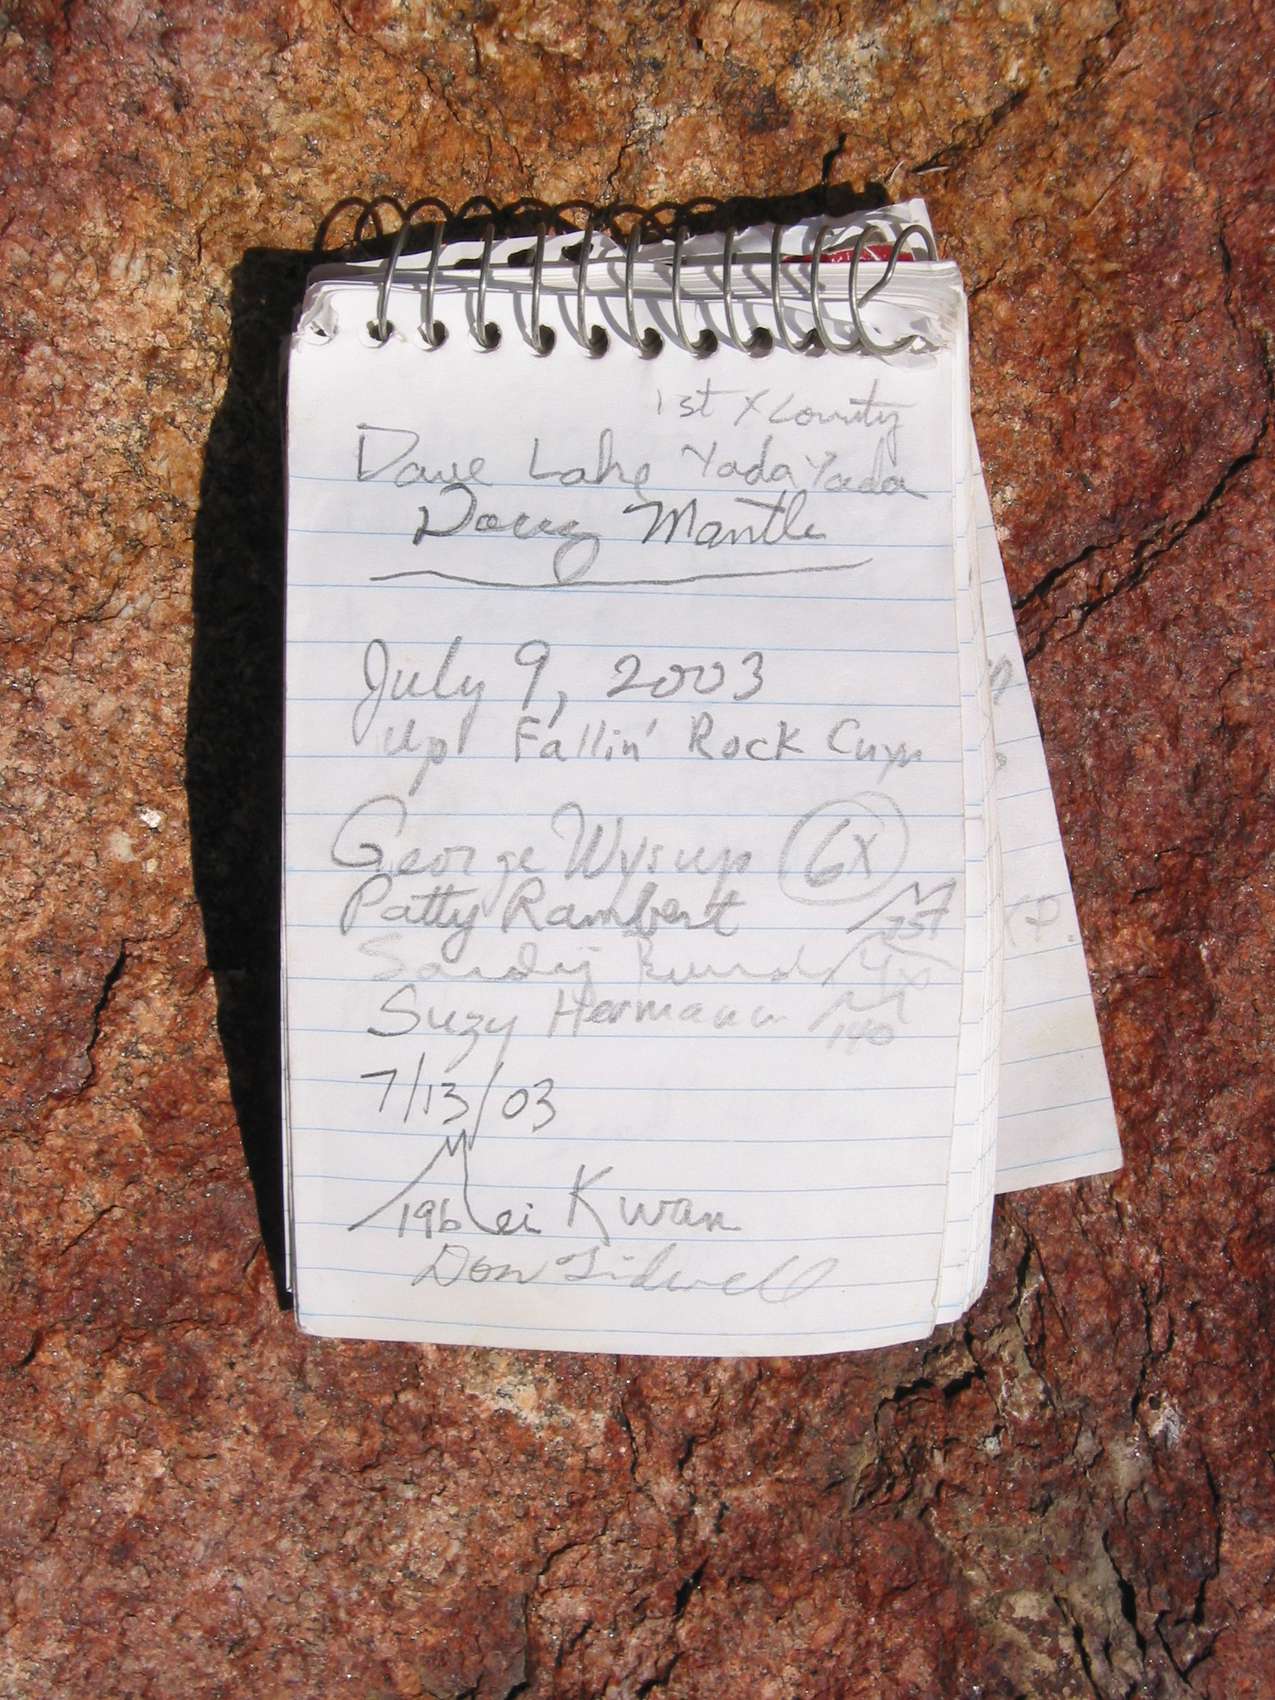 1st X County
Dave Lahe Yada Yada
Doug Mantle
July 9, 2003
Up Fallin' Rock Cnyn
George Wysup 6X
Patty Rambert
Suzy Hermann 140
7/13/03
196 Mei Kwan
Don Tidwell